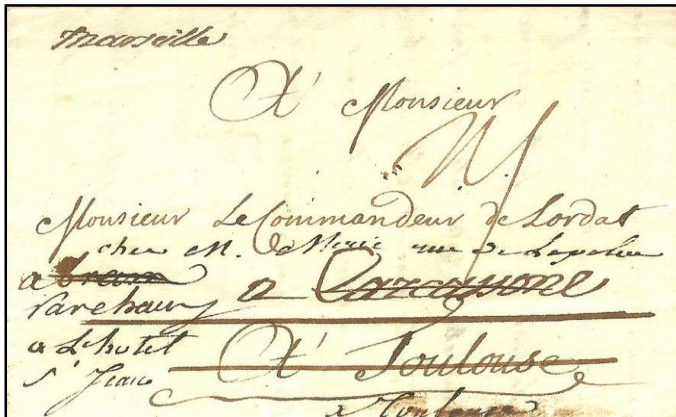 Marseille
A' Monsieur
Monsieur Le Commandeur de Lordat
chez M. rue de
a Bram a Carcassone
a L'hotel
St Jean A' Toulouse
a Toulouse